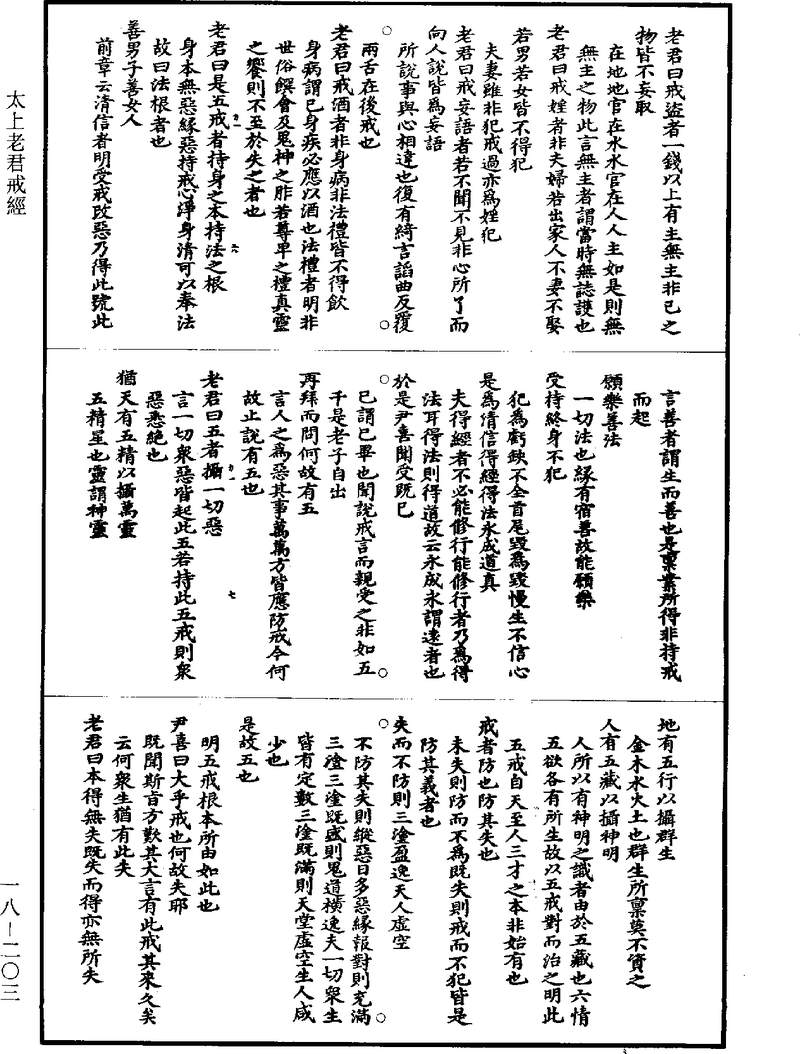 太上老君戒經
老君曰戒盜者一錢以上有主無主非己之
物皆不妄取
在地地官在水水官在人人主如是則無
無主之物此言無主者謂當時無誌護也
老君曰戒婬者非夫婦若出家人不妻不娶
若男若女皆不得犯
夫妻雖非犯戒過亦為婬犯
老君曰戒妄語者若不聞不見非心所了而
向人說皆為妄語
所說事與心相違也復有綺言謟曲反覆
兩舌在後戒也
老君曰戒酒者非身病非法禮皆不得飲
身病謂己身疾必應以酒也法禮者明非
世俗饌會及鬼神之胙若尊卑之禮真靈
之饗則不至於失之者也
老君曰是五戒者持身之本持法之根
身本無惡緣惡持戒心淨身清可以奉法
故曰法根者也
善男子善女人
前章云清信者明受戒改惡乃得此號此
言善者謂生而善也是稟業所得非持戒
而起
願樂善法
一切法也緣有宿善故能願樂
受持終身不犯
犯為虧缺不全首尾毀為毀慢生不信心
是為清信得經得法永成道真
夫得經者不必能修行能修行者乃為得
法耳得法則得道故云永成永謂遠者也
於是尹喜聞受既已
已謂已畢也聞說戒言而親受之非如五
千是老子自出
再拜而問何故有五
言人之為惡其事萬萬方皆應防戒今何
故止說有五也
老君曰五者攝一切惡
言一切眾惡皆起此五若持此五戒則眾
惡悉絕也
猶天有五精以攝萬靈
五精星也靈謂神靈
地有五行以攝群生
金木水火土也群生所稟莫不資之
人有五藏以攝神明
人所以有神明之識者由於五藏也六情
五欲各有所生故以五戒對而治之明此
五戒自天至人三才之本非始有也
戒者防也防其失也
未失則防而不為既失則戒而不犯皆是
防其義者也
失而不防則三塗盈逸天人虛空
不防其失則縱惡日多惡緣報對則充滿
三塗三塗既盛則鬼道橫逸夫一切眾生
皆有定數三塗既滿則天堂虛空生人咸
少也
是故五也
明五戒根本所由如此也
尹喜曰大乎戒也何故失耶
既聞斯旨方歎其大言有此戒其來久矣
云何眾生猶有此失
老君曰本得無失既失而得亦無所失
一八－二〇三